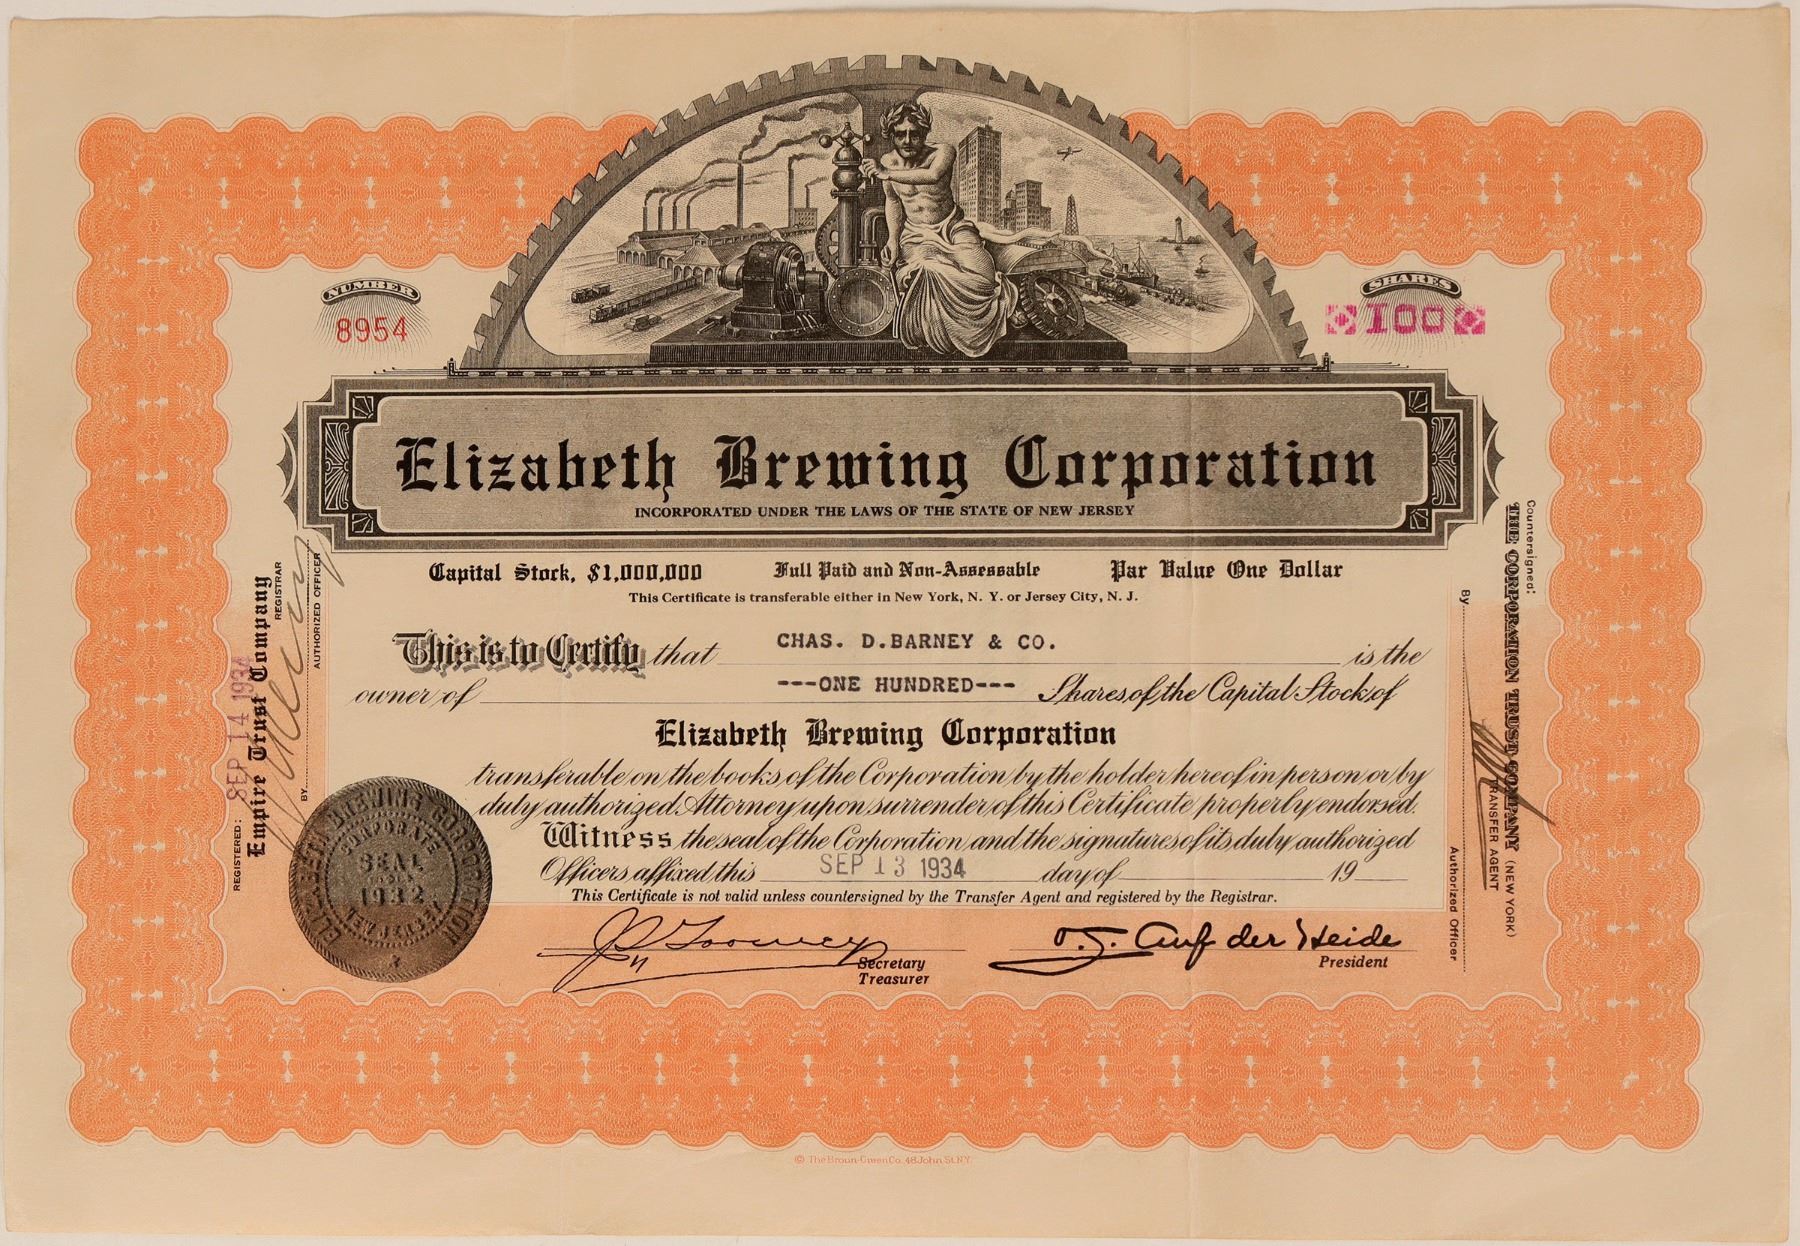 NUMBER
8954
SHARES
100
Elizabeth Brewing Corporation
INCORPORATED UNDER THE LAWS OF THE STATE OF NEW JERSEY
Capital Stock, $1,000,000 Full Paid and Non-Assessable Par Value One Dollar
This Certificate is transferable either in New York, N. Y. or Jersey City, N. J.
This is to Certify that CHAS. D. BARNEY & CO. is the
owner of ---ONE HUNDRED--- Shares of the Capital Stock of
Elizabeth Brewing Corporation
transferable on the books of the Corporation by the holder hereof in person or by
duly authorized Attorney upon surrender of this Certificate properly endorsed.
Witness the seal of the Corporation and the signatures of its duly authorized
Officers affixed this SEP 13 1934 day of 19
This Certificate is not valid unless countersigned by the Transfer Agent and registered by the Registrar.
Secretary
Treasurer
O. J. Auf der Heide
President
REGISTERED: SEP 14 1934
Empire Trust Company
REGISTRAR
BY
AUTHORIZED OFFICER
Countersigned:
THE CORPORATION TRUST COMPANY (NEW YORK)
TRANSFER AGENT
By
Authorized Officer
ELIZABETH BREWING CORPORATION
CORPORATE
SEAL
1932
NEW JERSEY
© The Broun-Green Co. 48 John St. N.Y.